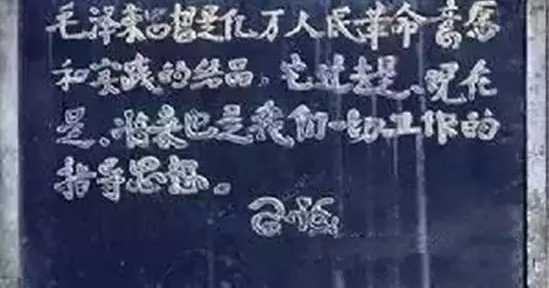 毛泽东思想是亿万人民革命意愿
和实践的结晶。它过去是、现在
是、将来也是我们一切工作的
指导思想。